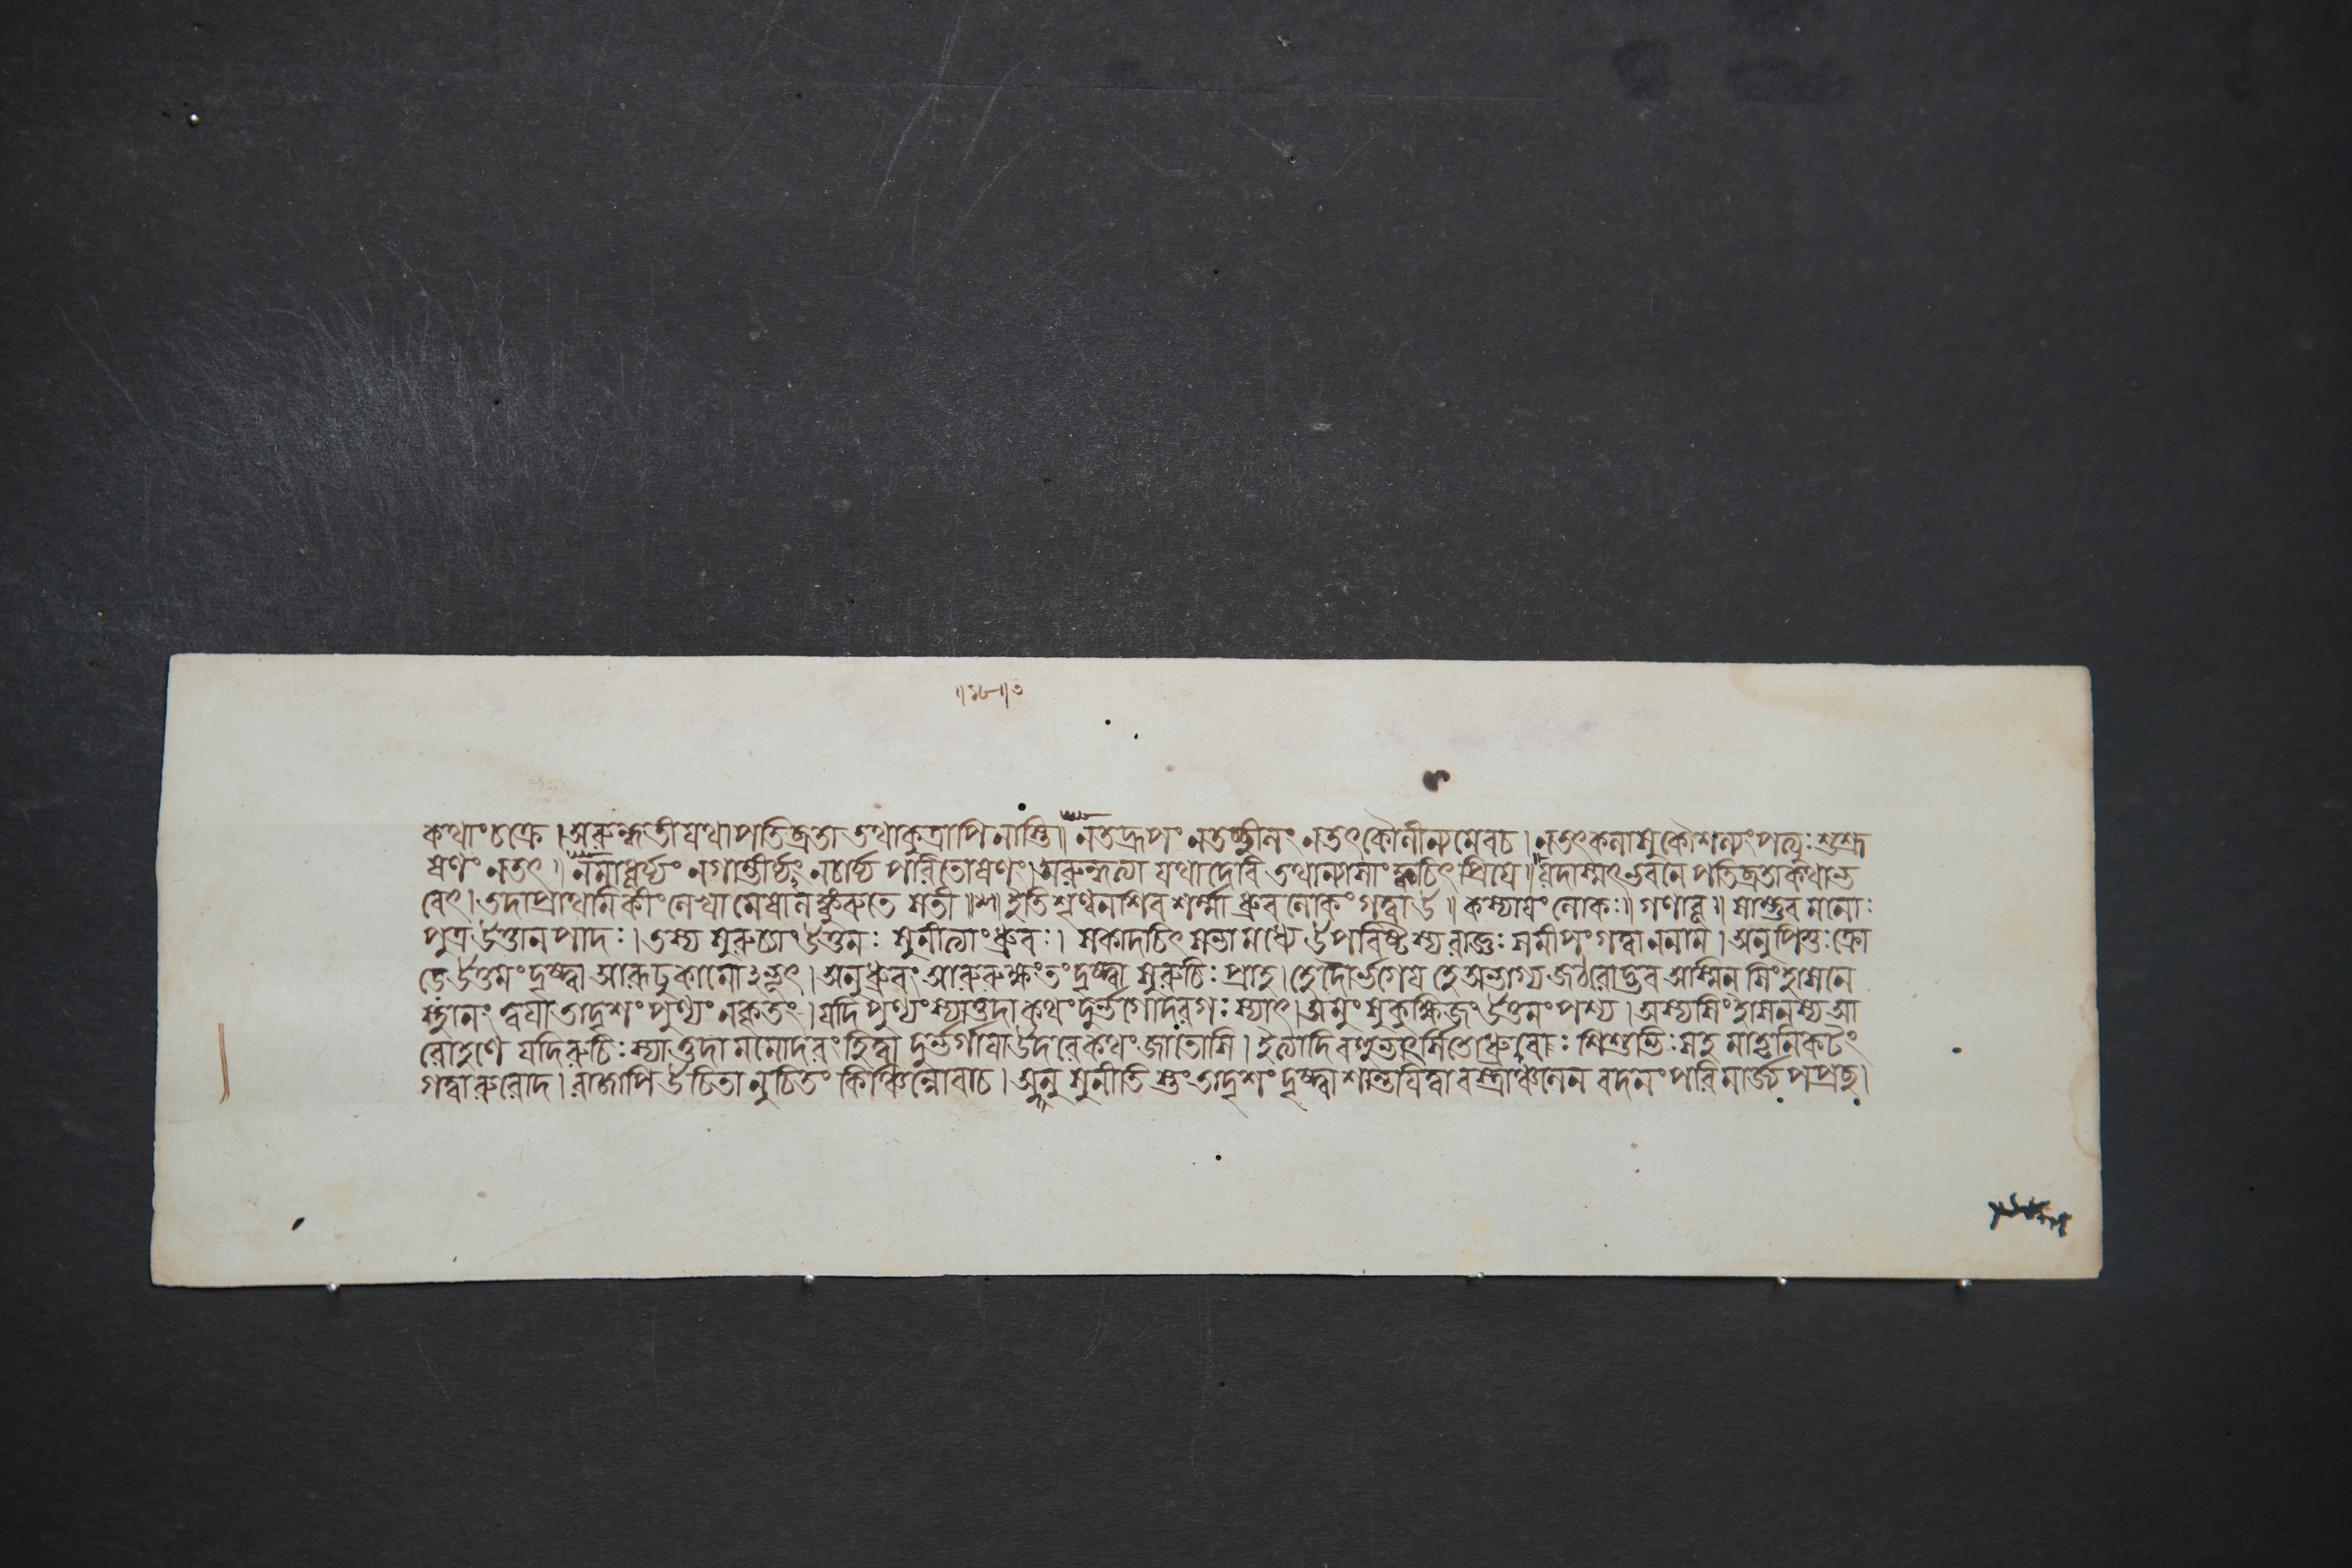 ॥১৮॥৩
কথাং চক্রে । অরুন্ধতী যথা পতিব্রতা তথা কুত্রাপি নাস্তি ॥ নতদ্রূপং নতচ্ছীলং নতৎকৌলীন্যমেবচ । নতৎকলাসুকৌশল্যং পত্যুঃ শুশ্রূ
ষণং নতৎ ॥ নমাধুর্য্যং নগাম্ভীর্য্যং নচার্য্য পরিতোষণং । অরুন্ধত্যা যথাদেবি তথান্যাসাং ক্বচিৎ প্রিয়ে ॥ যদাস্মৎভবনে পতিব্রতাকথাভ
বেৎ । তদাপ্রাথমিকীং লেখা মেষালঙ্কুরুতে সতী ॥ ইতি শৃণ্বনশিবশর্ম্মা ধ্রুবলোকং গত্বা উ ॥ কস্যায়ং লোকঃ ॥ গণাবূ ॥ সাম্ভুব মনোঃ
পুত্র উত্তানপাদঃ । তস্য সুরুচ্যাং উত্তমঃ সুনীত্যাং ধ্রুবঃ । সকদাচিৎ সভামধ্যে উপাবিষ্টস্য রাজ্ঞঃ সমীপং গত্বা ননাম । অনুপিতুঃ ক্রো
ডে উত্তমং দৃষ্ট্বা আরূঢুকামোঽভূৎ । অনুধ্রুবং আরুরুক্ষংতং দৃষ্ট্বা সুরুচিঃ প্রাহ । হেদৌর্ভগেয় হেঅভাগ্য জঠরোদ্ভব আস্মিন্ সিংহাসনে
স্থানং ত্বয়া তাদৃশং পুণ্যং নকৃতং । যদি পুণ্যং স্যাত্তদা কথং দুর্ভগোদরগঃ স্যাৎ । অমুং সুকুক্ষিজং উত্তমং পশ্য । অস্যসিংহাসনস্য আ
রোহণে যদিরুচিঃ স্যাত্তদা মমোদরং হিত্বা দুর্ভগায়াউদরে কথং জাতোসি । ইত্যাদি ধ্রুবোঃ শিশুভিঃ সহ মাতৃনিকটং
গত্বারুরোদ । রাজাপি উচিতানুচিতং কিঞ্চিন্নোবাচ । অনু সুনীতি স্তং তাদৃশং দৃষ্ট্বা শান্তয়িত্বা বস্ত্রাঞ্চলেন বদনং পরিমার্জ্য পপ্রচ্ছ ।